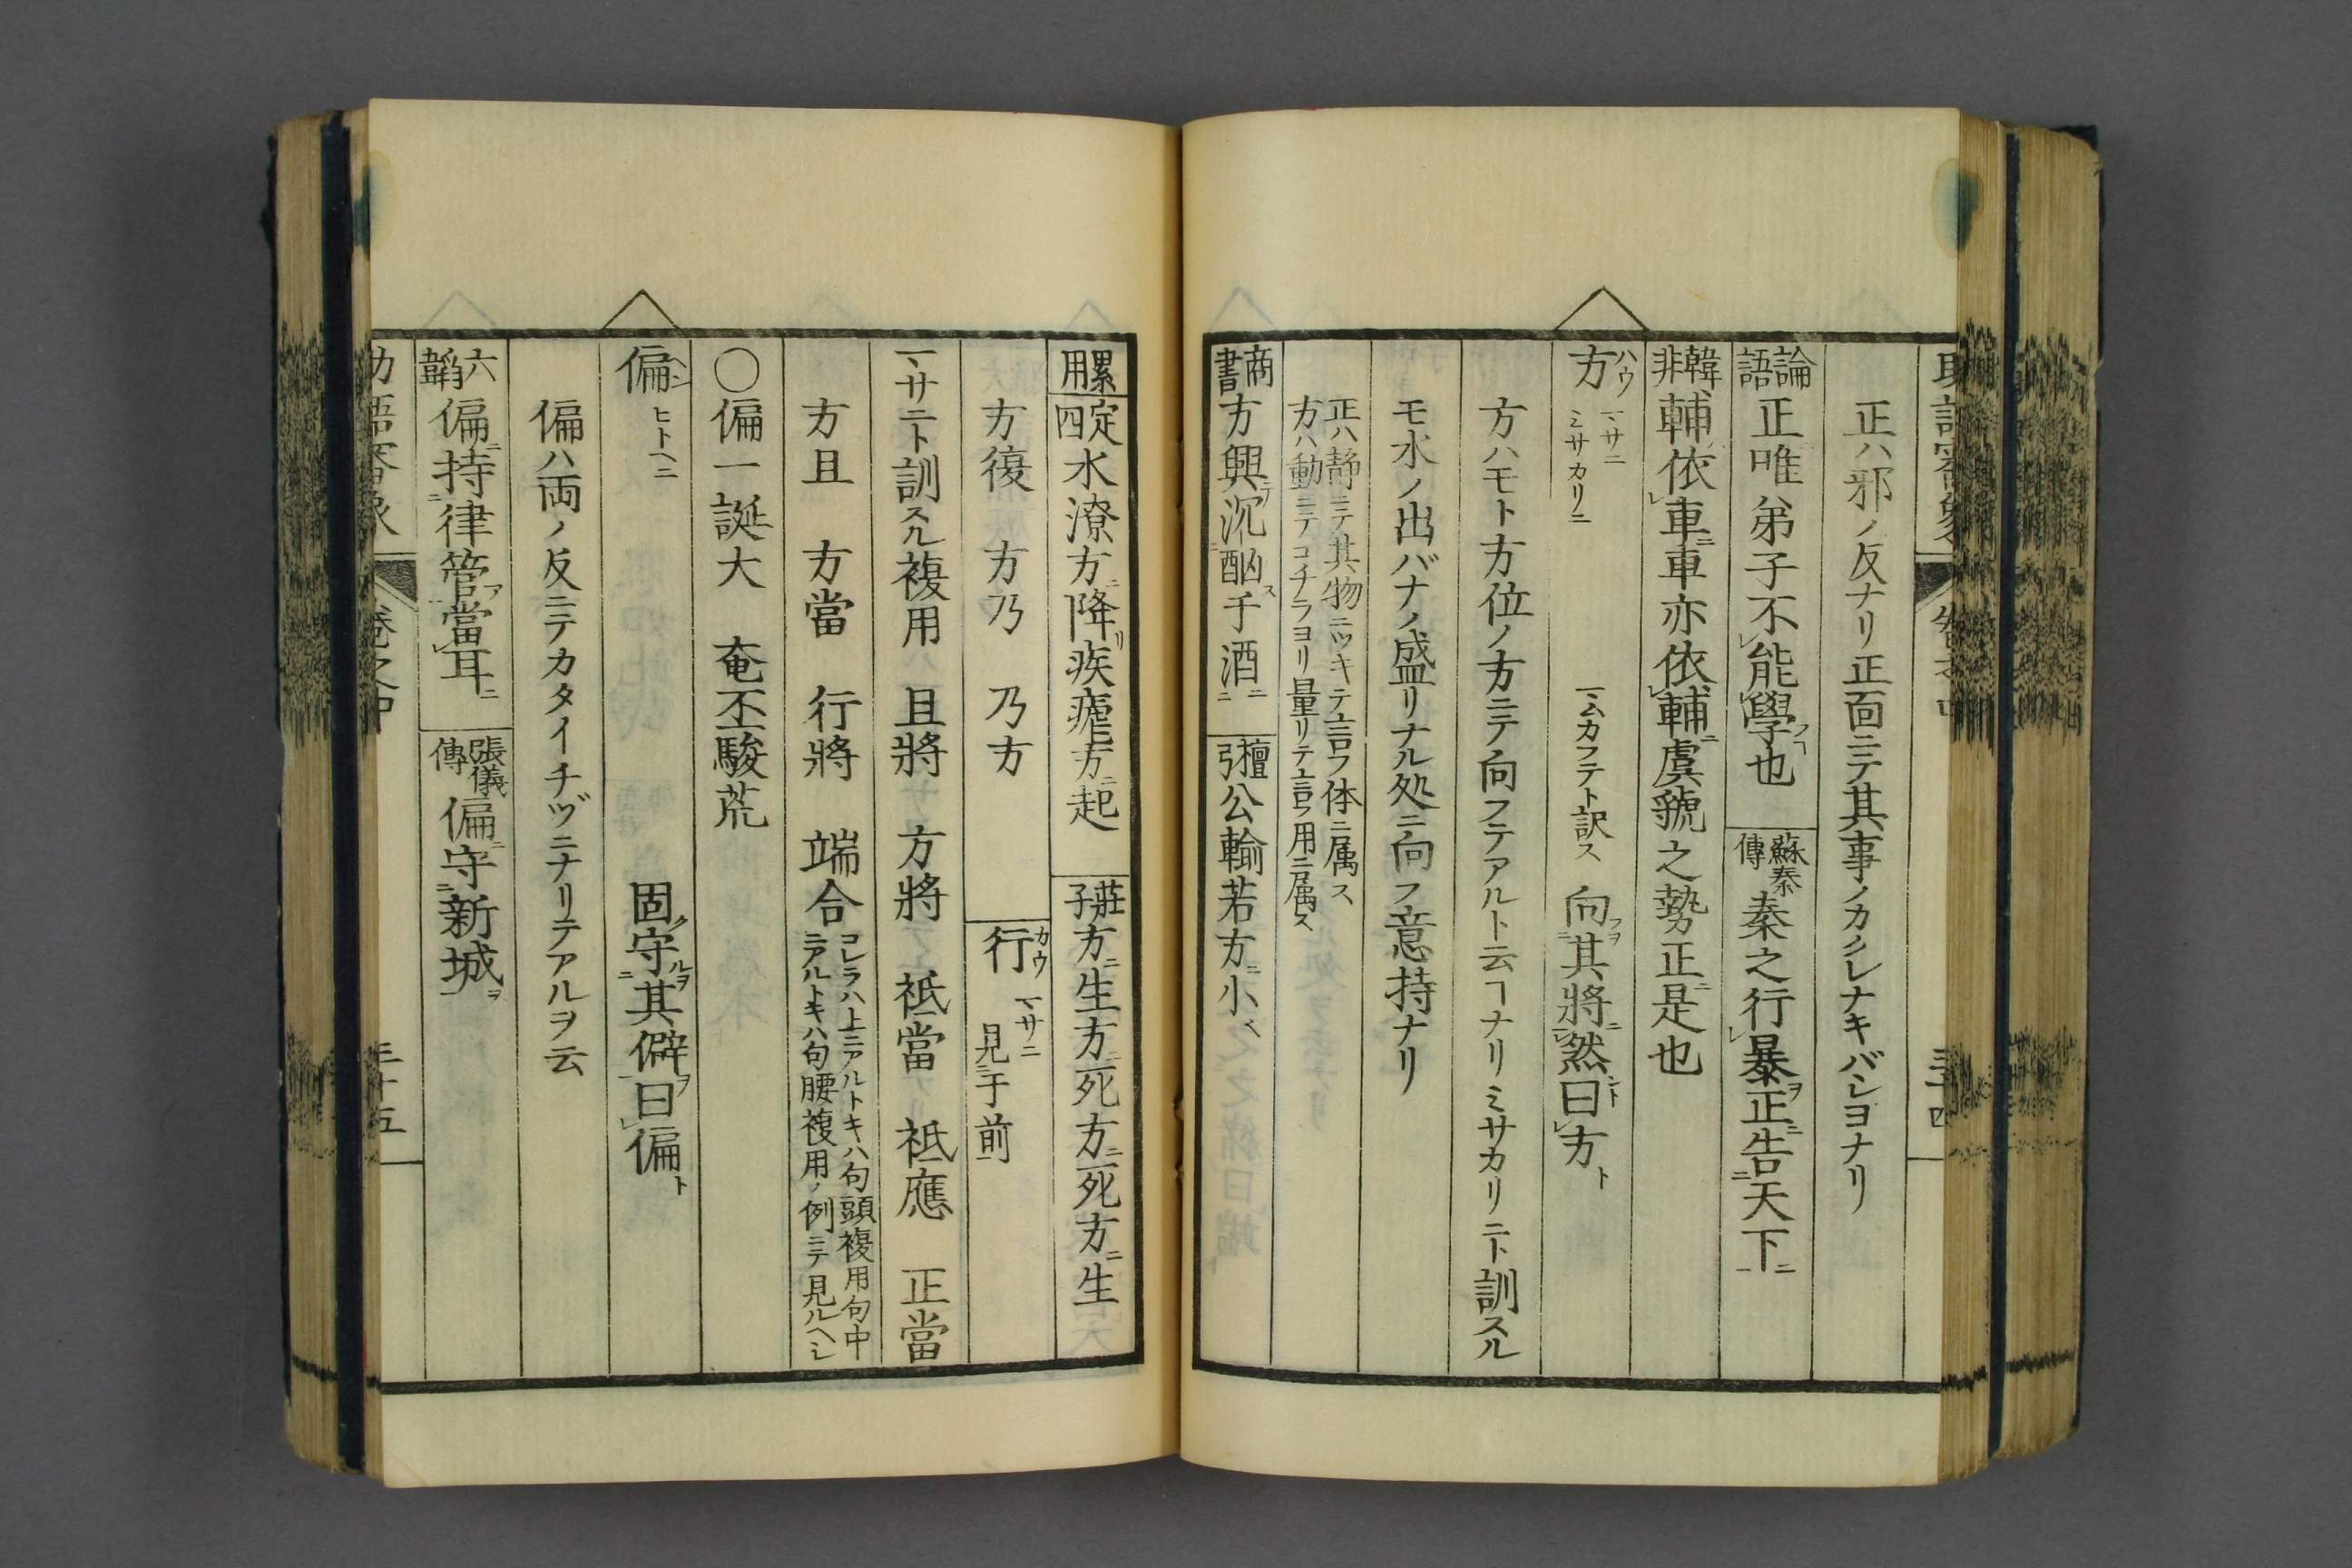 正ハ邪ノ反ナリ正面ニテ其事ノカクレナキバシヨナリ
論語 正唯弟子不能學也 蘇秦傳 秦之行暴正告天下
韓非 輔依車車亦依輔虞虢之勢正是也
方 ハウ マサニ ミサカリニ マムカフテト訳ス 向其將然曰方
方ハモト方位ノ方ニテ向フテアルト云ヿナリミサカリニト訓スル
モ水ノ出バナノ盛リナル処ニ向フ意持ナリ
正ハ静ニテ其物ニツキテ言フ体ニ属ス
方ハ動ニテコチラヨリ量リテ言フ用ニ属ス
商書 方興沉酗于酒 檀弓 公輸若方小
累用 定四 水潦方降疾瘧方起 莊子 方生方死方死方生
方復 方乃 乃方 行 カウ マサニ 見于前
マサニト訓スル複用 且將 方將 祗當 祗應 正當
方且 方當 行將 端合 コレラハ上ニアルトキハ句頭複用句中
ニアルトキハ句腰複用ノ例ニテ見ルヘシ
〇偏一誕大 奄丕駿荒
偏 ヘン ヒトヘニ 固守其僻曰偏
偏ハ両ノ反ニテカタイチヅニナリテアルヲ云
六韜 偏持律管當耳 張儀傳 偏守新城
卷之中 三十五